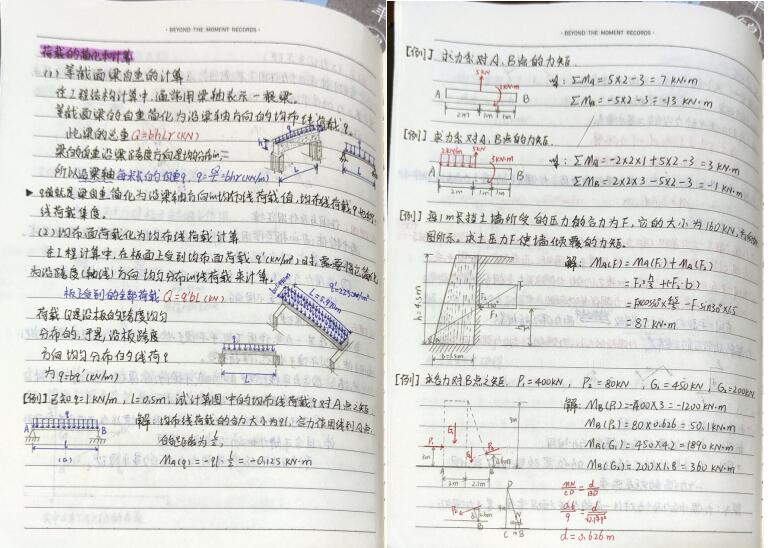 · BEYOND THE MOMENT RECORDS ·
荷载的简化和计算
(1) 等截面梁自重的计算
在工程结构计算中,通常用梁轴表示一根梁。
等截面梁的自重简化为沿梁轴方向的均布线荷载q。
此梁的总重Q=bhLγ(KN)
梁的自重沿梁跨度方向是均匀分布的,
所以沿梁轴每米长的自重q, q=Q/L=bhγ(KN/m)
q值就是梁自重简化为沿梁轴方向的均布线荷载值,均布线荷载q也称
线荷载集度。
(2) 均布面荷载化为均布线荷载计算
在工程计算中,在板面上受到均布面荷载q'(KN/m²)时,需要将它简化
为沿跨度(轴线)方向均匀分布的线荷载来计算。
板上受到的全部荷载 Q=q'bL(KN)
荷载Q是沿板的跨度均匀
分布的,于是,沿板跨度
方向均匀分布的线荷q
为q=bq'(KN/m)
[例]已知q=1KN/m, l=0.5m, 试计算图中的均布线荷载q对A点之矩。
解:均布线荷载的合力大小为ql,合力作用线到A点
的距离为l/2,
MA(q)=-ql·l/2=-0.125KN·m
A B
(a)
· BEYOND THE MOMENT RECORDS ·
[例] 求力系对A、B点的力矩。
解:ΣMA=5×2-3=7KN·m
ΣMB=-5×2-3=-13KN·m
5KN
3KN·m
A B
2m 1m 1m
[例] 求力系对A、B点的力矩。
解:ΣMA=-2×2×1+5×2-3=3KN·m
ΣMB=2×2×3-5×2-3=-1KN·m
2KN/m 5KN
3KN·m
A B
2m 1m 1m
[例] 每1m长挡土墙所受的压力的合力为F,它的大小为160KN,
图所示。求土压力F使墙倾覆的力矩。
解:MA(F)=MA(F₁)+MA(F₂)
=F₁·h/3+(-F₂·b)
=87KN·m
h=4.5m
b=1.5m
[例] 求各力对B点之矩。P₁=400KN, P₂=80KN, G₁=450KN, G₂=200KN
解:MB(P₁)=-400×3=-1200KN·m
MB(P₂)=80×0.626=50.1KN·m
MB(G₁)=450×4.2=1890KN·m
MB(G₂)=200×1.8=360KN·m
A B
d=0.626m